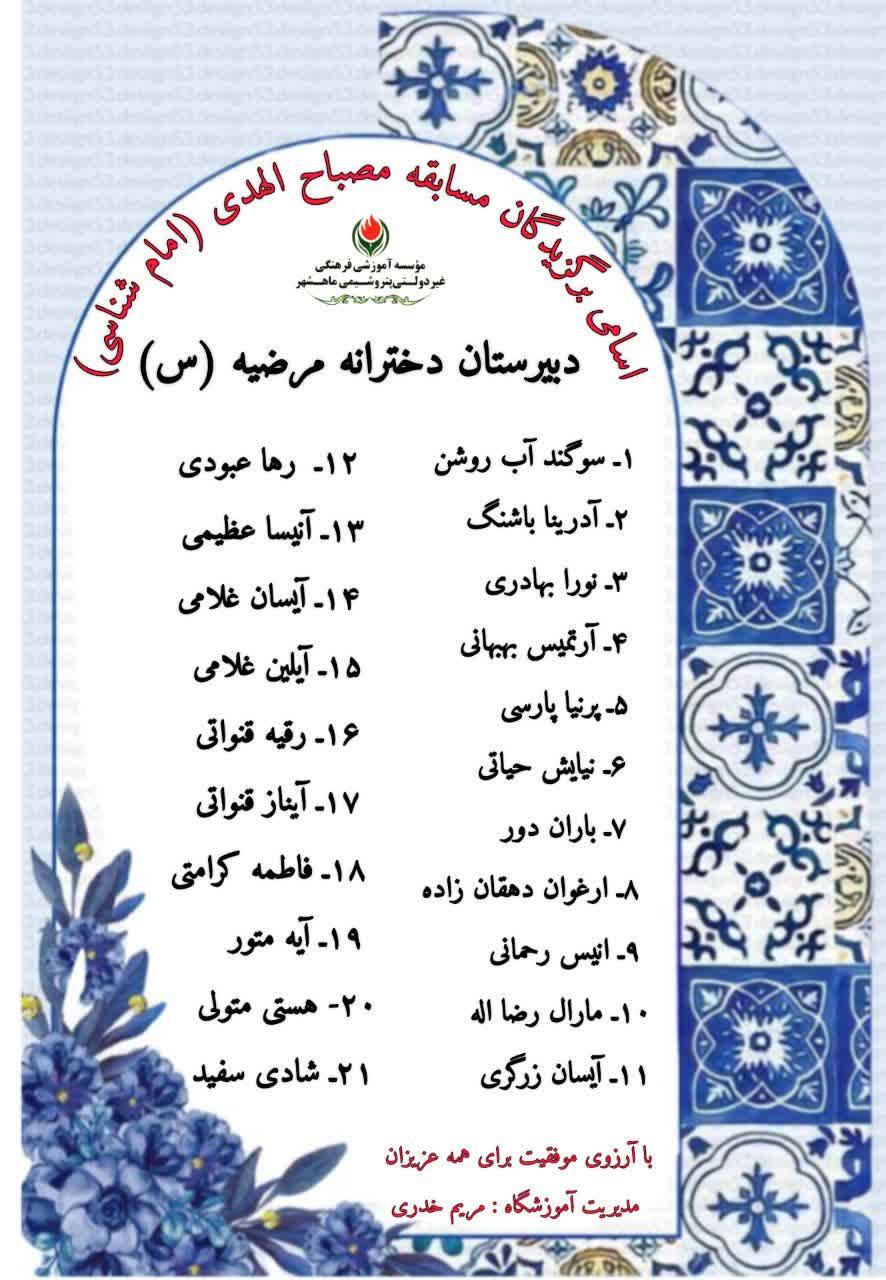 اسامی برگزیدگان مسابقه مصباح الهدی (امام شناسی)
مؤسسه آموزشی فرهنگی
غیردولتی پتروشیمی ماهشهر
دبیرستان دخترانه مرضیه (س)
۱ـ سوگند آب روشن
۲ـ آدرینا باشنگ
۳ـ نورا بهادری
۴ـ آرتمیس بهبهانی
۵ـ پرنیا پارسی
۶ـ نیایش حیاتی
۷ـ باران دور
۸ـ ارغوان دهقان زاده
۹ـ انیس رحمانی
۱۰ـ مارال رضا اله
۱۱ـ آیسان زرگری
۱۲ـ رها عبودی
۱۳ـ آنیسا عظیمی
۱۴ـ آیسان غلامی
۱۵ـ آیلین غلامی
۱۶ـ رقیه قنواتی
۱۷ـ آیناز قنواتی
۱۸ـ فاطمه کرامتی
۱۹ـ آیه متور
۲۰- هستی متولی
۲۱ـ شادی سفید
با آرزوی موفقیت برای همه عزیزان
مدیریت آموزشگاه : مریم خدری